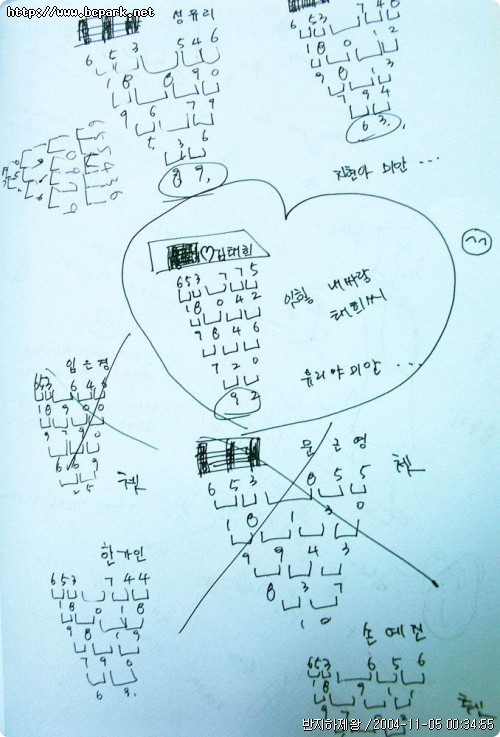 http://www.bcpark.net
성유리
6 5 3 5 4 6
1 8 8 9 0
9 6 7 9
5 3 6
8 9.
653
1 8 0 1 2
9 8 1 3
7 9 4
6 3.
지현아 미안 ...
♡김태희
653 7 7 5
1 8 0 4 2
9 8 4 6
7 2 0
9 2
내사랑
태희씨
유리야 미안 ...
^^
임은경
653 6 4 6
1 8 9 0 0
9 7 9 0
6 6 9
2 5
쳇
문근영
6 5 3 8 5 5
1 8 1 3 0
9 9 4 3
8 3 7
1 0
쳇
한가인
653 7 4 4
1 8 0 1 8
9 8 1 9
7 9 0
6 3.
손예진
653 6 5 6
1 8 9 1 1
9 7 0 2
반지하제왕 / 2004-11-05 00:34:55